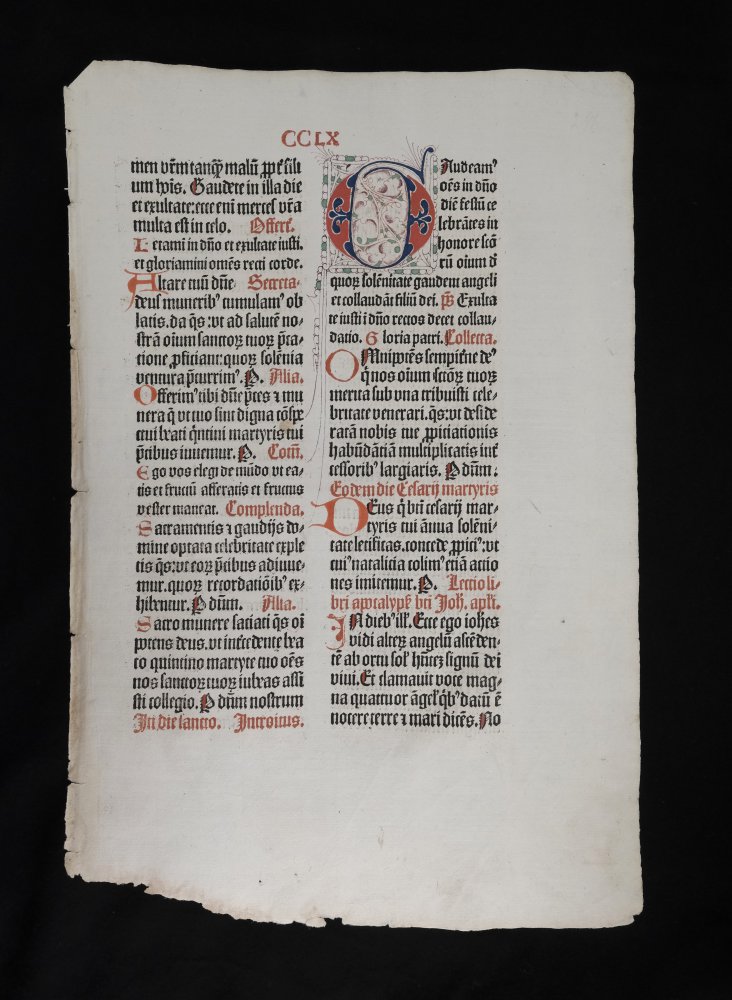 CCLX
men vr̄m tanq̄ȝ malū ꝓpt̄ fili
um hoı̄s. Gaudete in illa die
et exultate: ecce eni merceſ vr̄a
multa est in celo. Offerꝭ.
Letami in dn̄o et exultate iusti.
et gloriamini om̄es recti corde.
Altare tuū dn̄e Secreta.
deus munerib⁹ cumulam⁹ ob
latis. da q̄s: vt ad salutē no⸗
strā oı̄um sanctoꝝ tuoꝝ p̄ca⸗
tione ꝓficiant: quoꝝ solēnia
ventura p̄currim⁹. P. Alia.
Offerim⁹ tibi dn̄e p̄ces ⁊ mu
nera q̄ vt tuo sint digna cōsp̄c
tui beati q̄ntini martyris tui
p̄cibus iuuemur. P. Cōm̄.
Ego vos elegi de mūdo vt ea⸗
tis et fructū afferatis et fructus
vester maneat. Complenda.
Sacramentis ⁊ gaudijs do⸗
mine optata celebritate exple
tis q̄s: vt eoꝝ p̄cibus adiuue⸗
mur. quoꝝ recordatiōib⁹ ex⸗
hibentur. P dn̄um. Alia.
Sacro munere saciati q̄s oı̄
potens deus. vt int̄cedente bea
to quintino martyre tuo oēs
nos sanctoꝝ tuoꝝ iubeas assi
sti collegio. P dn̄m nostrum
In die sancto. Introitus.
GAudeam⁹
oēs in dn̄o
diē festū ce
lebrātes in
honore scō
rū oium d̄
quoꝝ solēnitate gaudent angeli
et collaudāt filiū dei. ps̄ Exulta
te iusti ı̄ dn̄o rectos decet collau⸗
datio. Gloria patri. Collecta.
OMnipotēs sempiterne de⁹
q̄ nos oium sctōꝝ tuoꝝ
merita sub vna tribuisti cele⸗
britate venerari. q̄s: vt deside
ratā nobis tue ꝓpiciationis
habūdātiā multiplicatis int̄
cessorib⁹ largiaris. P dn̄um:
Eodem die Cesarij martyris
DEus q̄ btı̄ cesarij mar⸗
tyris tui ānua solēni⸗
tate letificas. concede ꝓpici⁹: vt
cui⁹ natalicia colim⁹ etiā actio
nes imitemur. P. Lectio li⸗
bri apocalypẜ btı̄ Joh̄. apl̄i.
IN dieb⁹ ill̄. Ecce ego ioh̄es
vidi alteꝝ angelū ascēden⸗
tē ab ortu sol̄ hn̄teȝ signū dei
viui. Et clamauit voce mag⸗
na quattuor āgel̄ q̄b⁹ datū ē
nocere terre ⁊ mari dicēs. No